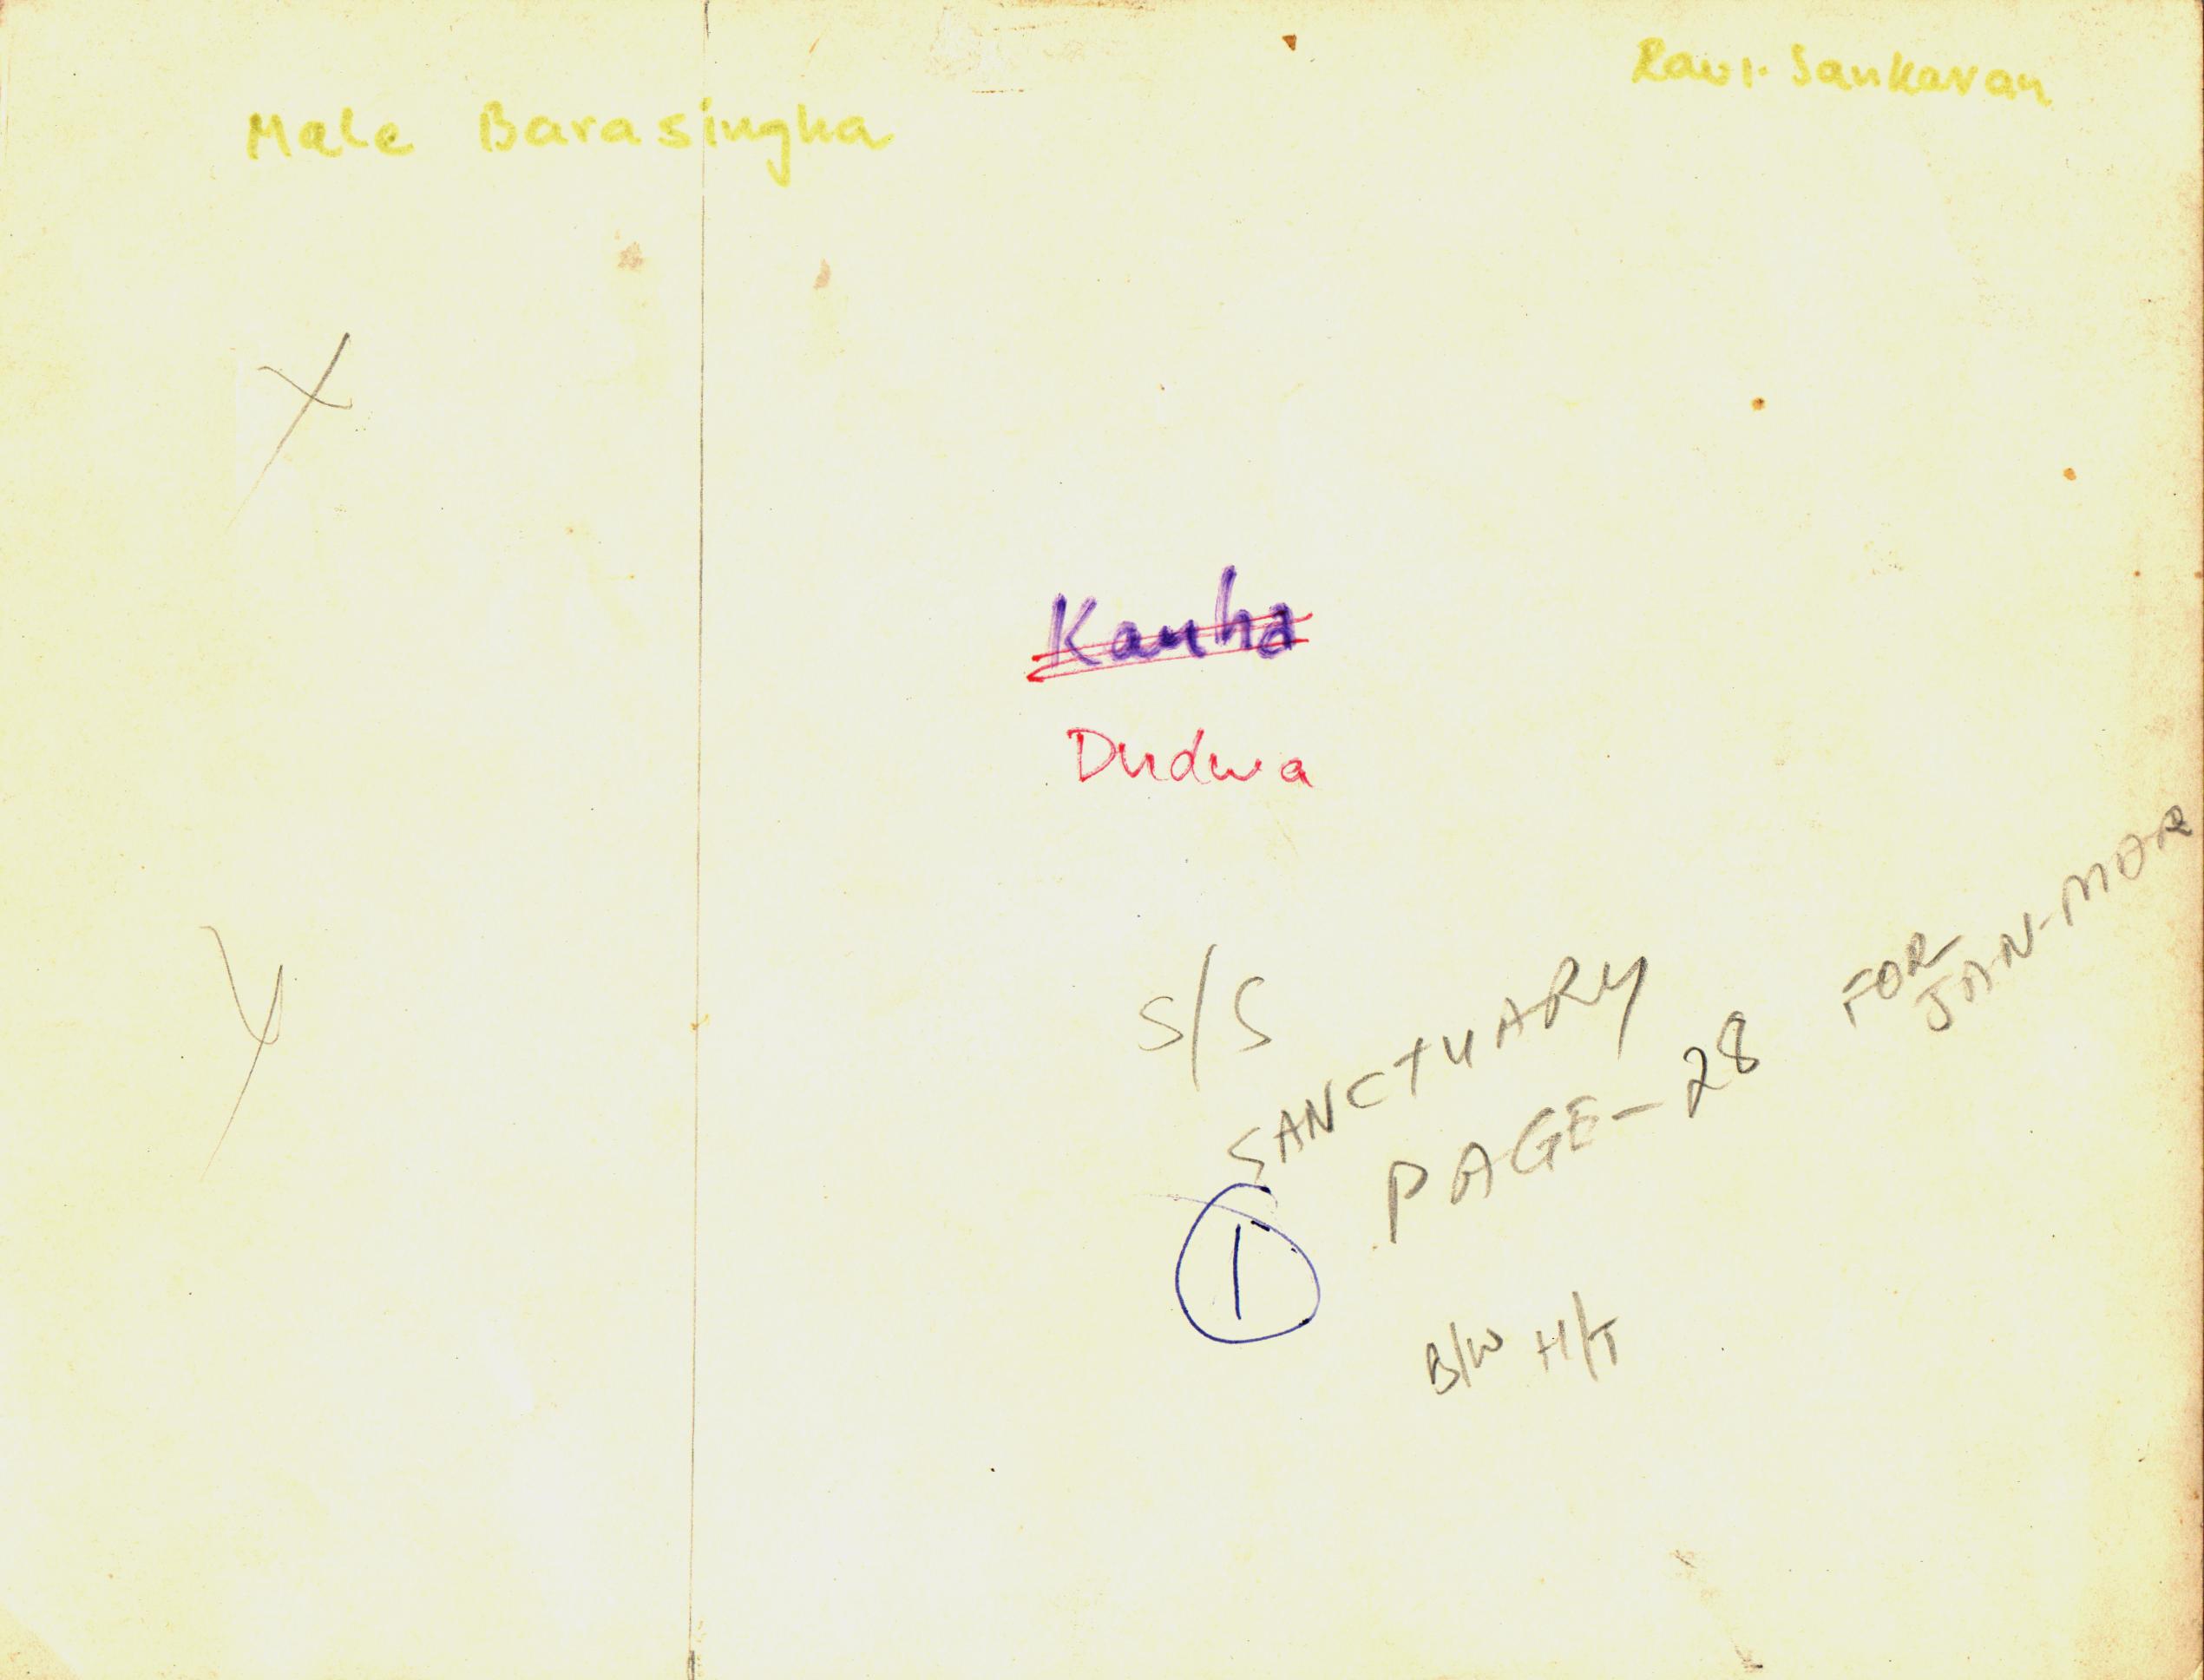 Ravi. Sankaran
Male Barasingha
X
Kanha
Dudwa
S/S
SANCTUARY
PAGE-28
FOR
JAN-MAR
1
B/W H/T